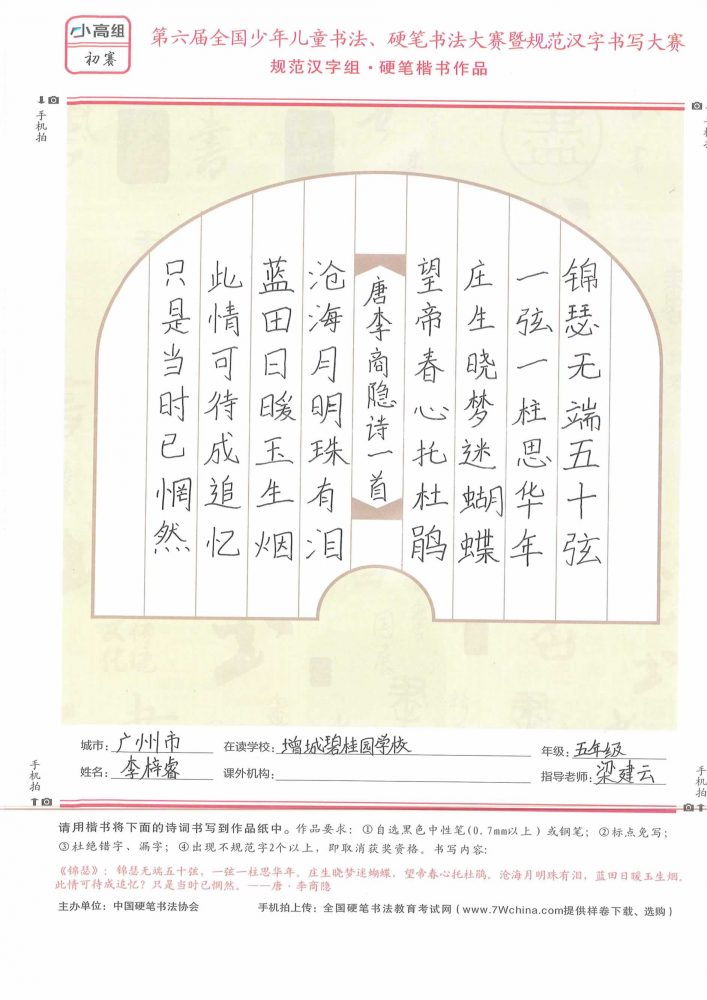 小高组
初赛
第六届全国少年儿童书法、硬笔书法大赛暨规范汉字书写大赛
规范汉字组·硬笔楷书作品
手机拍
锦瑟无端五十弦
一弦一柱思华年
庄生晓梦迷蝴蝶
望帝春心托杜鹃
唐李商隐诗一首
沧海月明珠有泪
蓝田日暖玉生烟
此情可待成追忆
只是当时已惘然
城市:广州市 在读学校:增城碧桂园学校 年级:五年级
姓名:李梓睿 课外机构: 指导老师:梁建云
手机拍
手机拍
请用楷书将下面的诗词书写到作品纸中。作品要求:①自选黑色中性笔(0.7mm以上)或钢笔;②标点免写;
③杜绝错字、漏字;④出现不规范字2个以上,即取消获奖资格。书写内容:
《锦瑟》:锦瑟无端五十弦,一弦一柱思华年。庄生晓梦迷蝴蝶,望帝春心托杜鹃。沧海月明珠有泪,蓝田日暖玉生烟。
此情可待成追忆?只是当时已惘然。——唐·李商隐
主办单位:中国硬笔书法协会 手机拍上传:全国硬笔书法教育考试网(www.7Wchina.com提供样卷下载、选购)